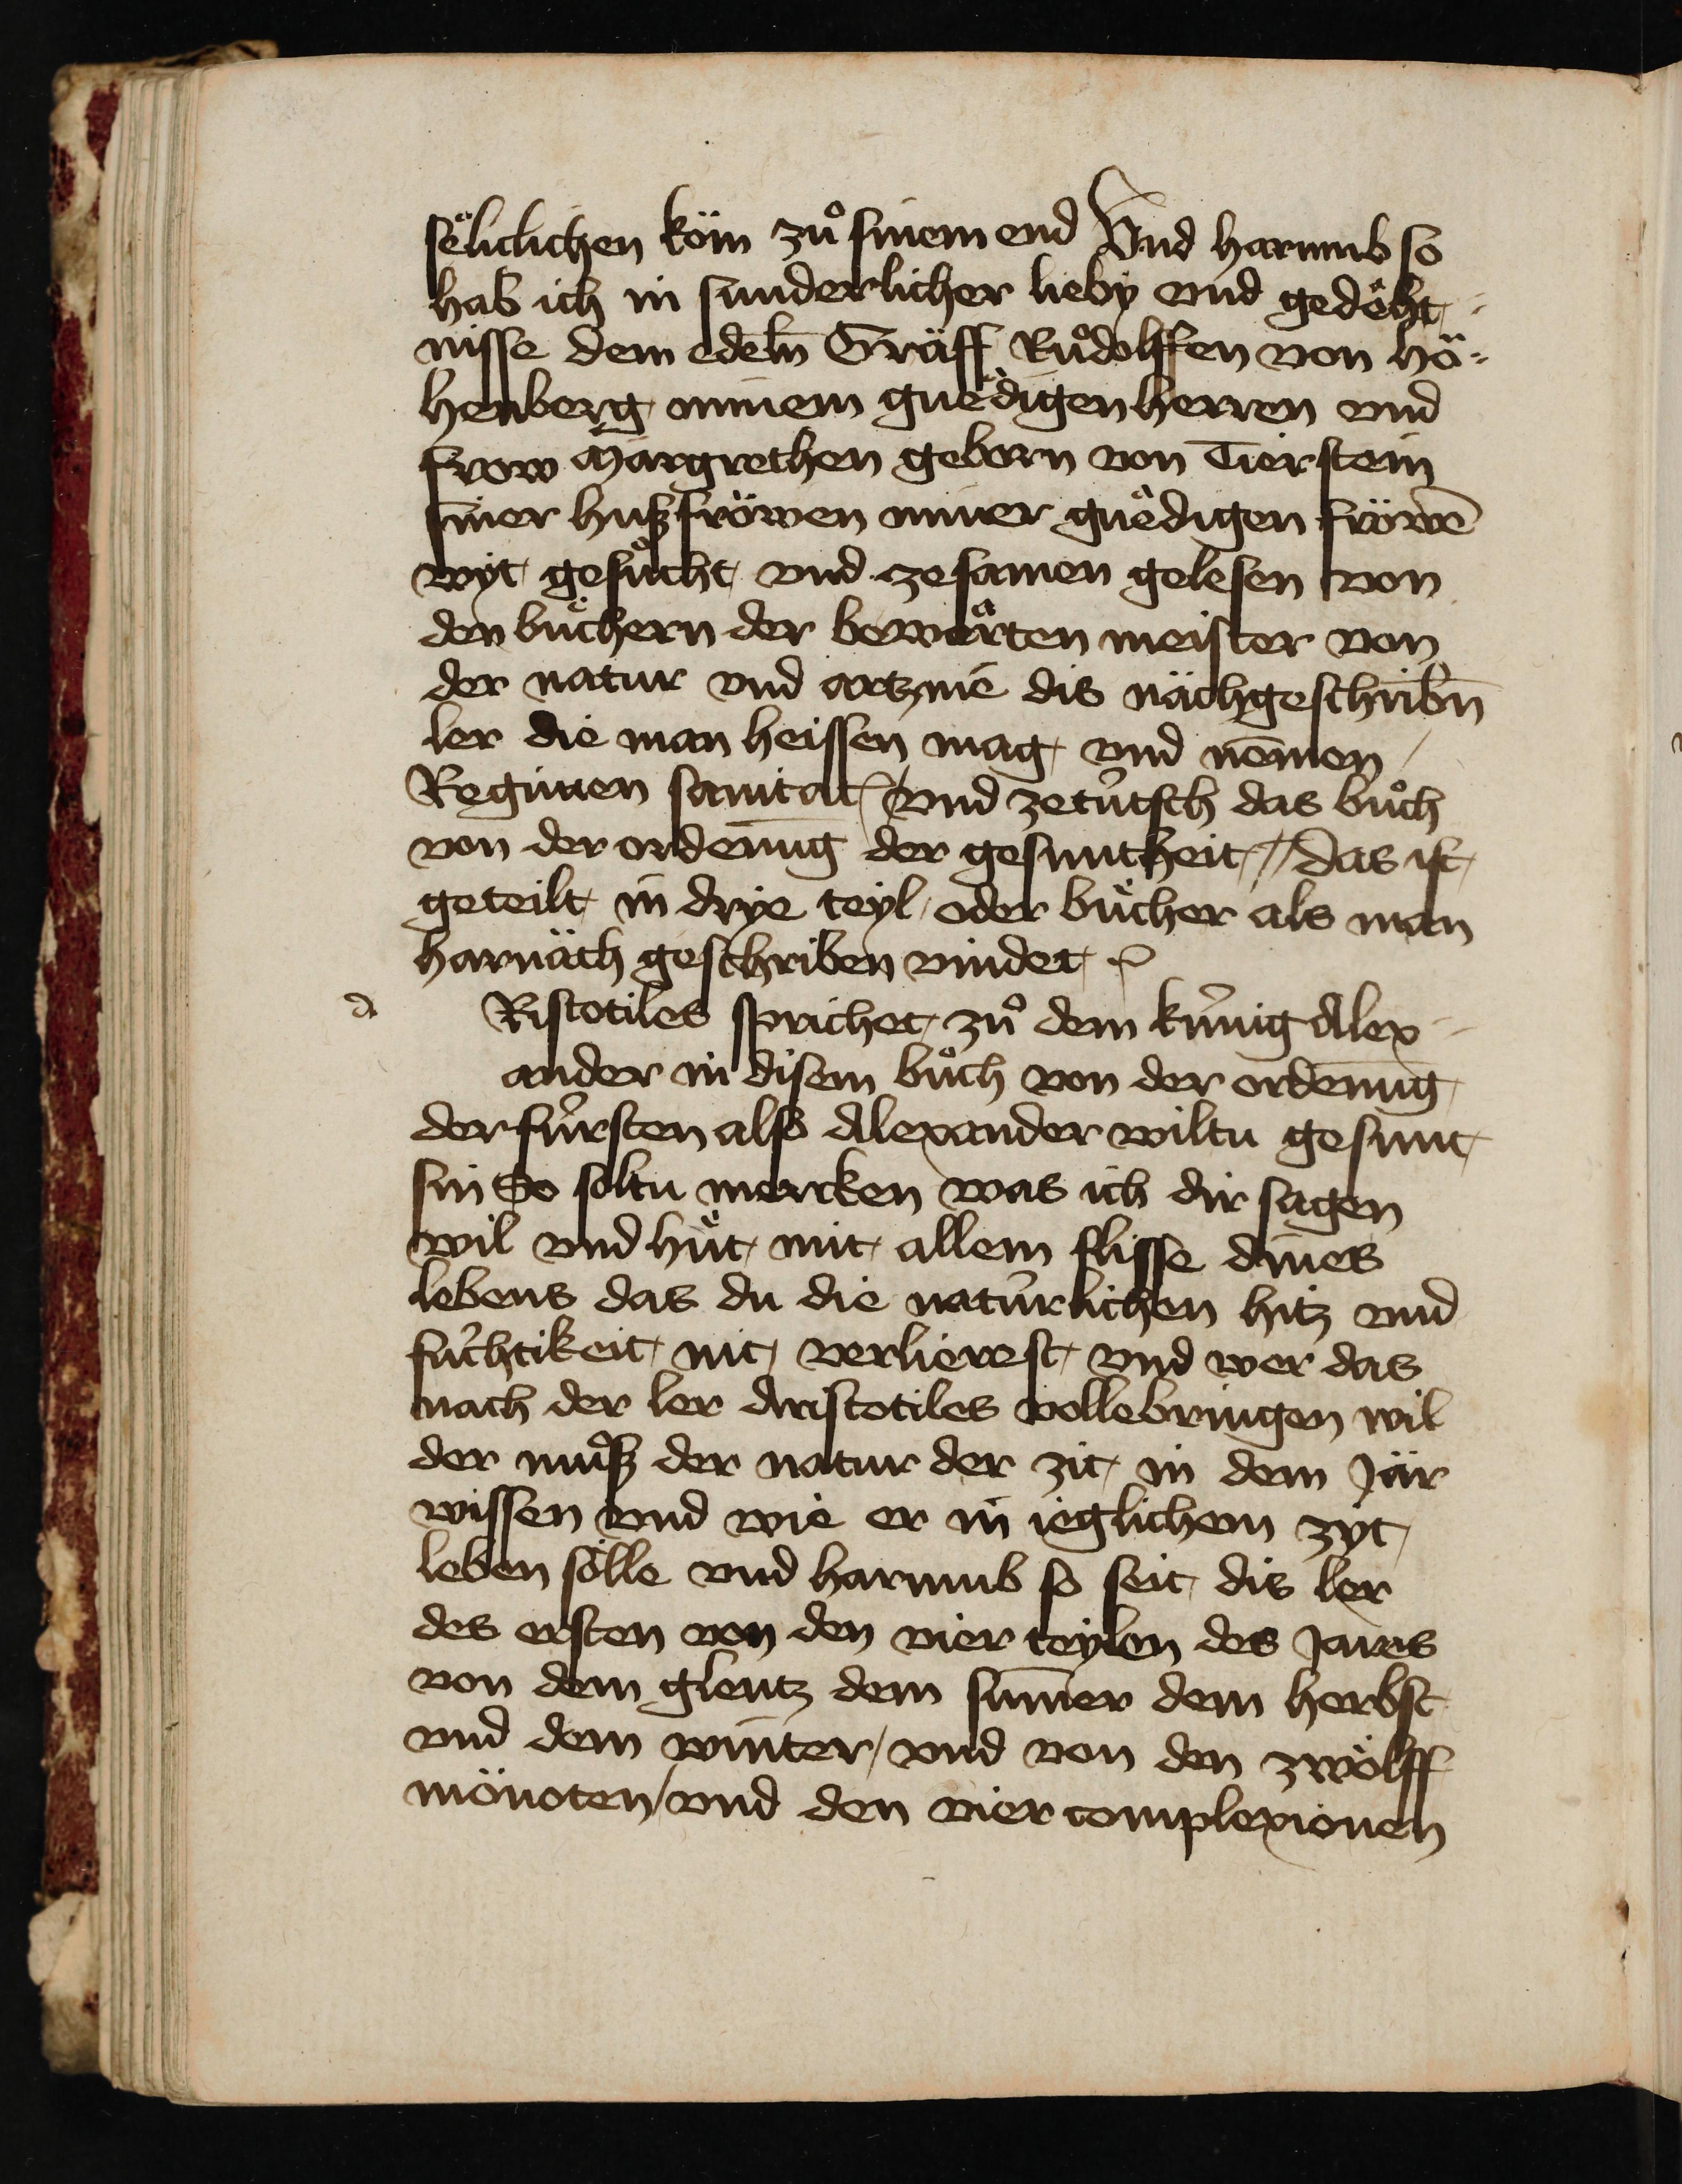 sëliclichen köm zuͦ sinem end Vnd harumb so
hab ich in sunderlicher lieby vnd gedëht-
nisse dem edeln̄ Gräff Ruͦdolffen von hö-
henberg minem gnëdigen herren vnd
frow Margrethen geborn von Tierstein
siner hußfröwen miner gnëdigen fröwē
wyt gesuͦcht vnd zesamen gelesen von
den buͤchern der bewaͤrten meister von
der natur vnd artznie dis nächgeschribn̄
ler die man heissen mag vnd nem̄en /
Regimen sanitat / Vnd zetuͤtsch das buͦch
von der ordenūng der gesuntheit // das ist
geteilt in drye teyl / oder buͤcher als man
harnäch geschriben vindet
a Ristotiles sprichet zuͦ dem kuͤnig Alex-
ander in disem buͦch von der ordenūng
der fuͤrsten also Alexander wiltu gesunt
sin So soltu mercken was ich dir sagen
wil vnd huͤt mit allem flisse dines
lebens das du die natuͤrlichen hitz vnd
fuͤchtikeit nit verlierest vnd wer das
nach der ler Aristotiles vollebringen wil
der muͦß der natur der zit in dem Jär
wissen vnd wie er in ieglichem zyt
leben sölle vnd harumb so seit dis ler
des ersten von den vier teylen des Jares
von dem glentz dem sum̄er dem herbst
vnd dem winter / vnd von den zwölff
mönoten / vnd den vier complexionen